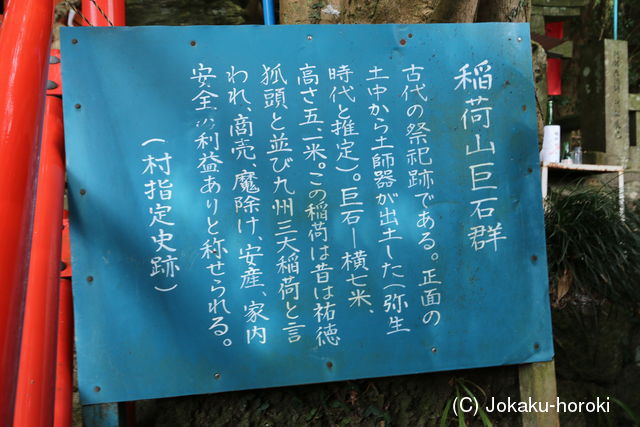 稲荷山巨石群
古代の祭祀跡である。正面の
土中から土師器が出土した(弥生
時代と推定)。巨石ー横七米、
高さ五、米。この稲荷は昔は祐徳
狐頭と並び九州三大稲荷と言
われ、商売、魔除け、安産、家内
安全の利益ありと称せられる。
(村指定史跡)
(C) Jokaku-horoki